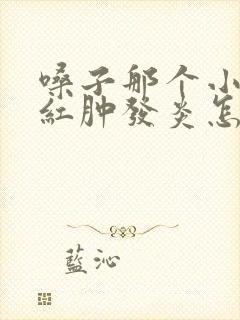 嗓子那个小
红肿發炎怎
藍沁